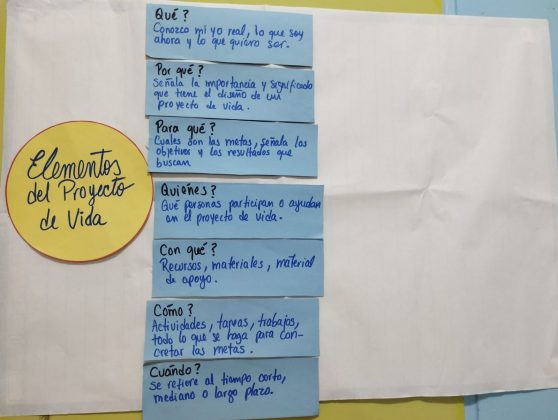 Elementos
del Proyecto
de Vida
Qué?
Conozco mi yo real, lo que soy
ahora y lo que quiero ser.
Por qué?
Señala la importancia y significado
que tiene el diseño de mi
proyecto de vida.
Para qué?
Cuales son las metas, señala los
objetivos y los resultados que
buscan
Quiénes?
Qué personas participan o ayudan
en el proyecto de vida.
Con qué?
Recursos, materiales, material
de apoyo.
Cómo?
Actividades, tareas, trabajos,
todo lo que se haga para con-
cretar las metas.
Cuándo?
Se refiere al tiempo, corto,
mediano o largo plazo.